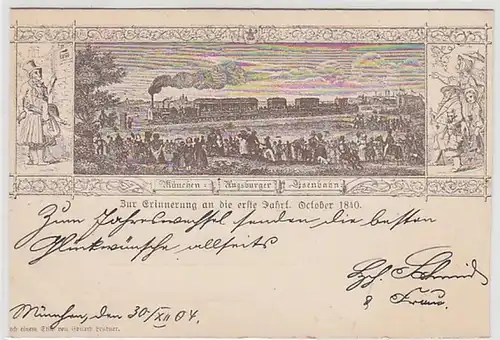 München-Augsburger Eisenbahn
Zur Erinnerung an die erste Fahrt. October 1840.
Zum Jahreswechsel senden die besten
Glückwünsche allseits
& Frau.
München, den 30/XII 04.
nach einem Stich von